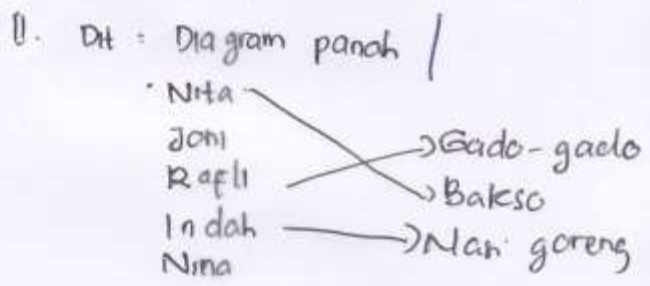 1. DH : Diagram panah
Nita
Joni
Rafli
Indah
Nina
Gado-gado
Bakso
Nasi goreng